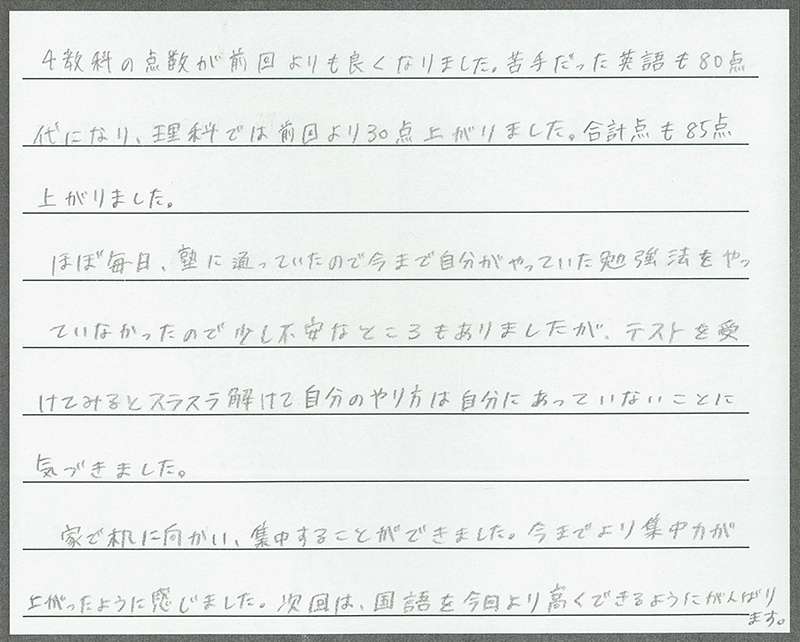 4教科の点数が前回よりも良くなりました。苦手だった英語も80点
代になり、理科では前回より30点上がりました。合計点も85点
上がりました。
ほぼ毎日、塾に通っていたので今まで自分がやっていた勉強法をやっ
ていなかったので少し不安なところもありましたが、テストを受
けてみるとスラスラ解けて自分のやり方は自分にあっていないことに
気づきました。
家で机に向かい、集中することができました。今までより集中力が
上がったように感じました。次回は、国語を今回より高くできるようにがんばり
ます。